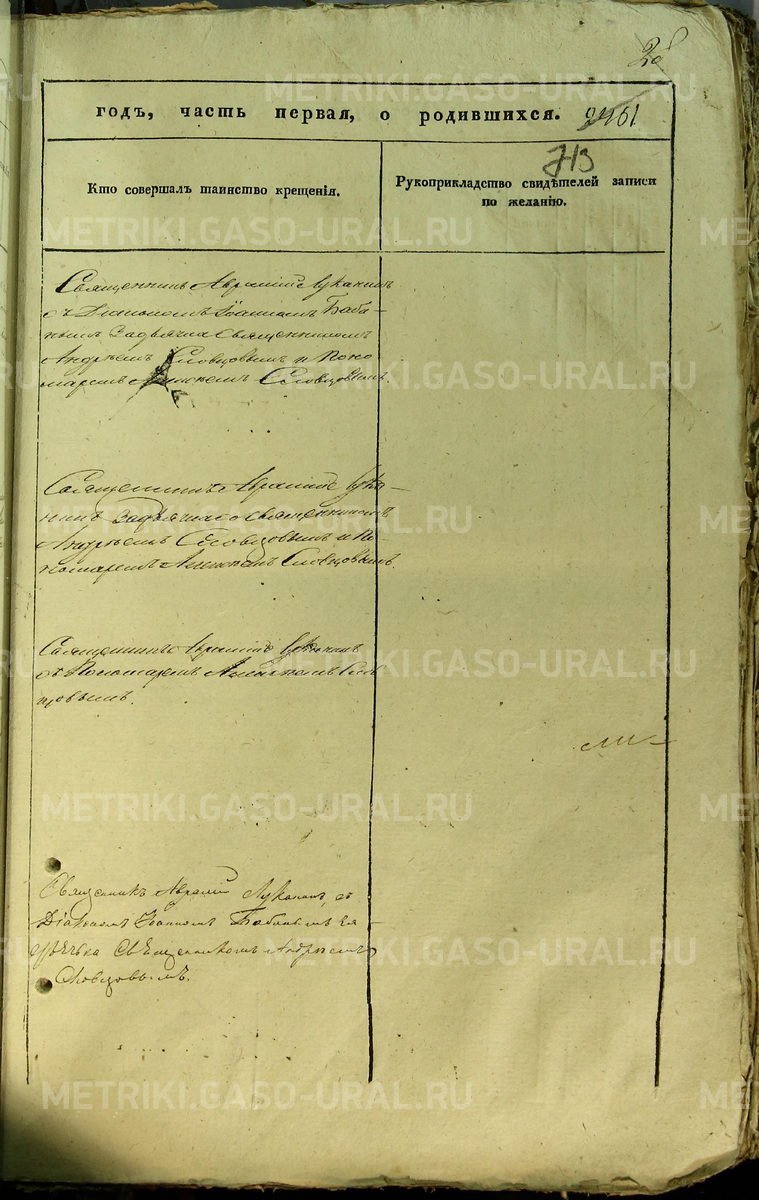 28
METRIKI.GASO-URAL.RU
годъ, часть первая, о родившихся. 2461
713
Кто совершалъ таинство крещенія.
Рукоприкладство свидѣтелей записи
по желанію.
METRIKI.GASO-URAL.RU
Священникъ Аврамій Луканинъ
съ Діакономъ Іоанномъ Баба-
Священникомъ
Андреемъ Словцовымъ и Поно
маремъ Словцовымъ.
METRIKI.GASO-URAL.RU
Священникъ Аврамій Лука-
нинъ Священникомъ
Андреемъ Словцовымъ и По-
номаремъ Словцовымъ.
METRIKI.GASO-URAL.RU
Священникъ Аврамій Луканинъ
съ Пономаремъ Сло
цовымъ.
METRIKI.GASO-URAL.RU
METRIKI.GASO-URAL.RU
Священникъ Аврамій Луканинъ съ
Діакономъ Іоанномъ
Священникомъ Андреемъ
Словцовымъ.
METRIKI.GASO-URAL.RU
METRIKI.GASO-URAL.RU